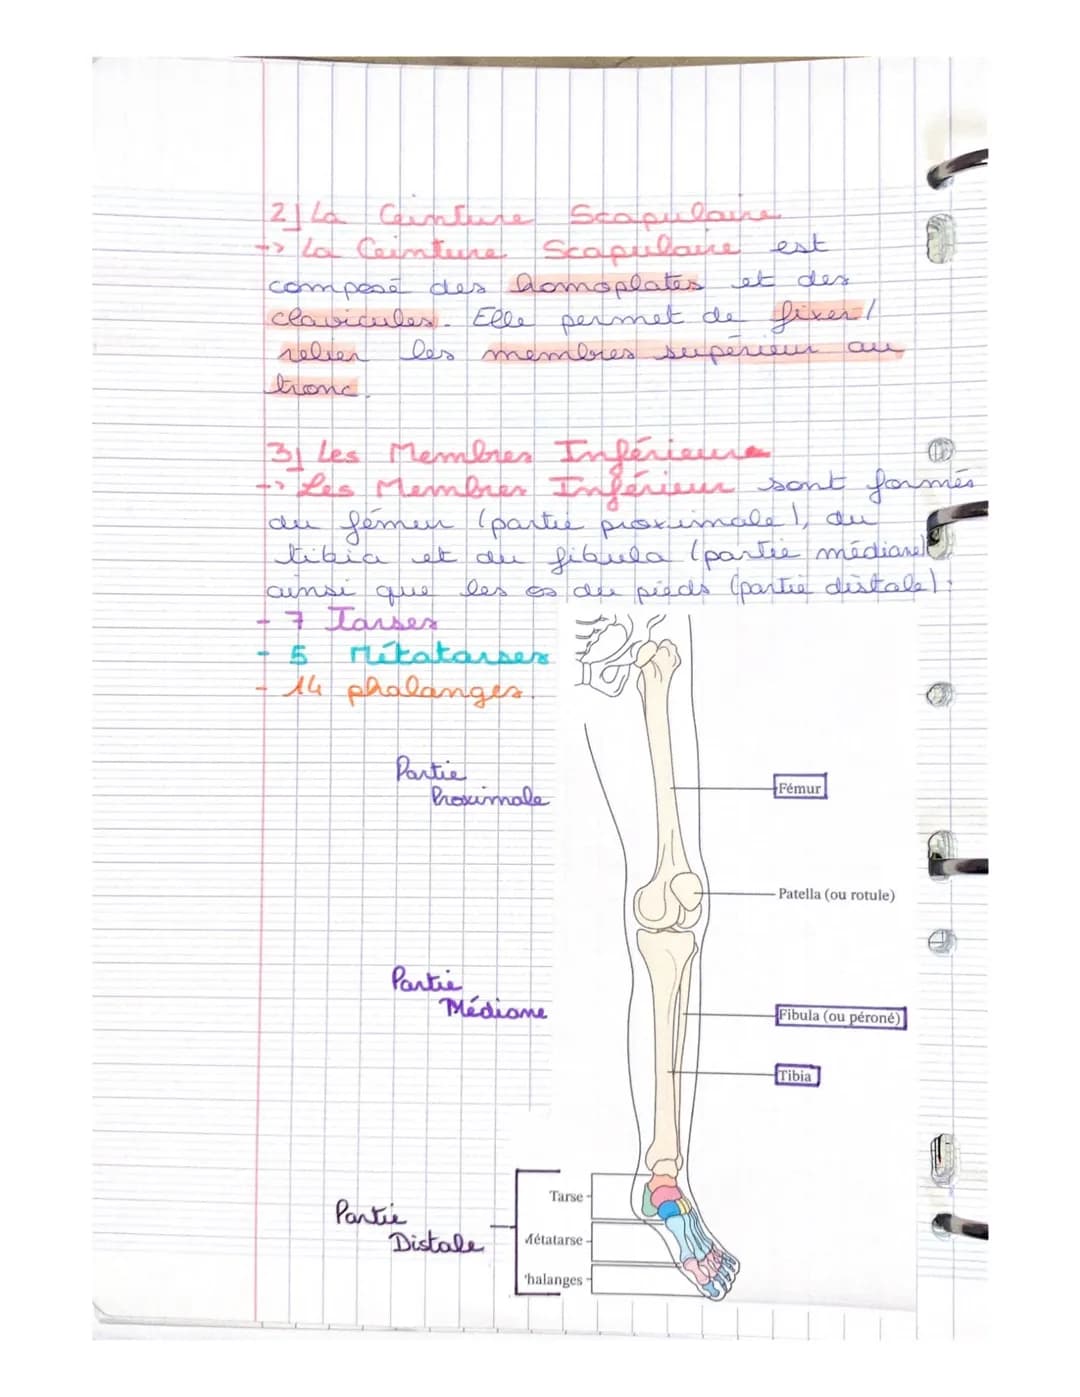 2] La Ceinture Scapulaire
-> La Ceinture Scapulaire est
composé des homoplates et des
clavicules. Elle permet de fixer/
relier les membres supérieur au
tronc.
3] Les Membres Inférieurs
-> Les Membres Inférieur sont formés
du fémur (partie proximale), du
tibia et du fibula (partie médiane)
ainsi que les os du pieds (partie distale) :
- 7 Tarses
- 5 Métatarses
- 14 phalanges.
Partie
Proximale
Fémur
Patella (ou rotule)
Partie
Médiane
Fibula (ou péroné)
Tibia
Partie
Distale
Tarse
Métatarse
halanges